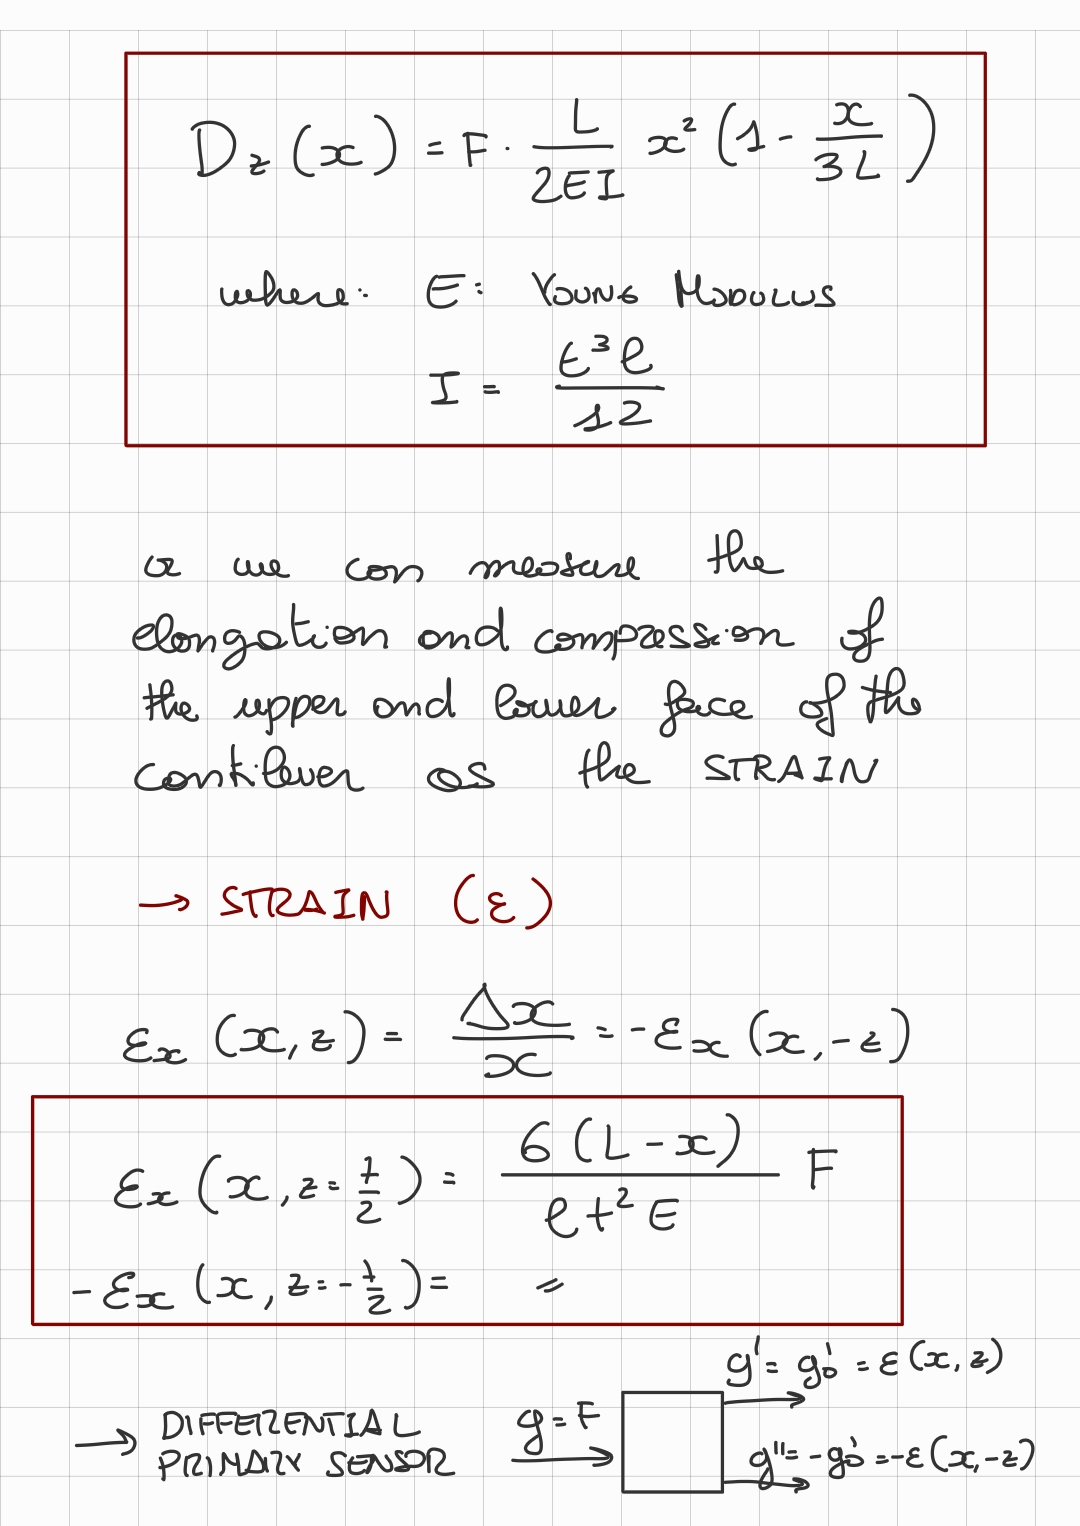 D_z (x) = F · L / 2EI x² (1 - x / 3L)
where: E: YOUNG MODULUS
I = t³ℓ / 12
or we can measure the
elongation and compression of
the upper and lower face of the
cantilever as the STRAIN
→ STRAIN (ε)
ε_x (x, z) = Δx / x = -ε_x (x, -z)
ε_x (x, z = t/2) = 6 (L - x) / ℓ t² E F
-ε_x (x, z = -t/2) = 〃
g' = g'₀ = ε (x, z)
→ DIFFERENTIAL g = F
PRIMARY SENSOR g'' = -g'₀ = -ε (x, -z)